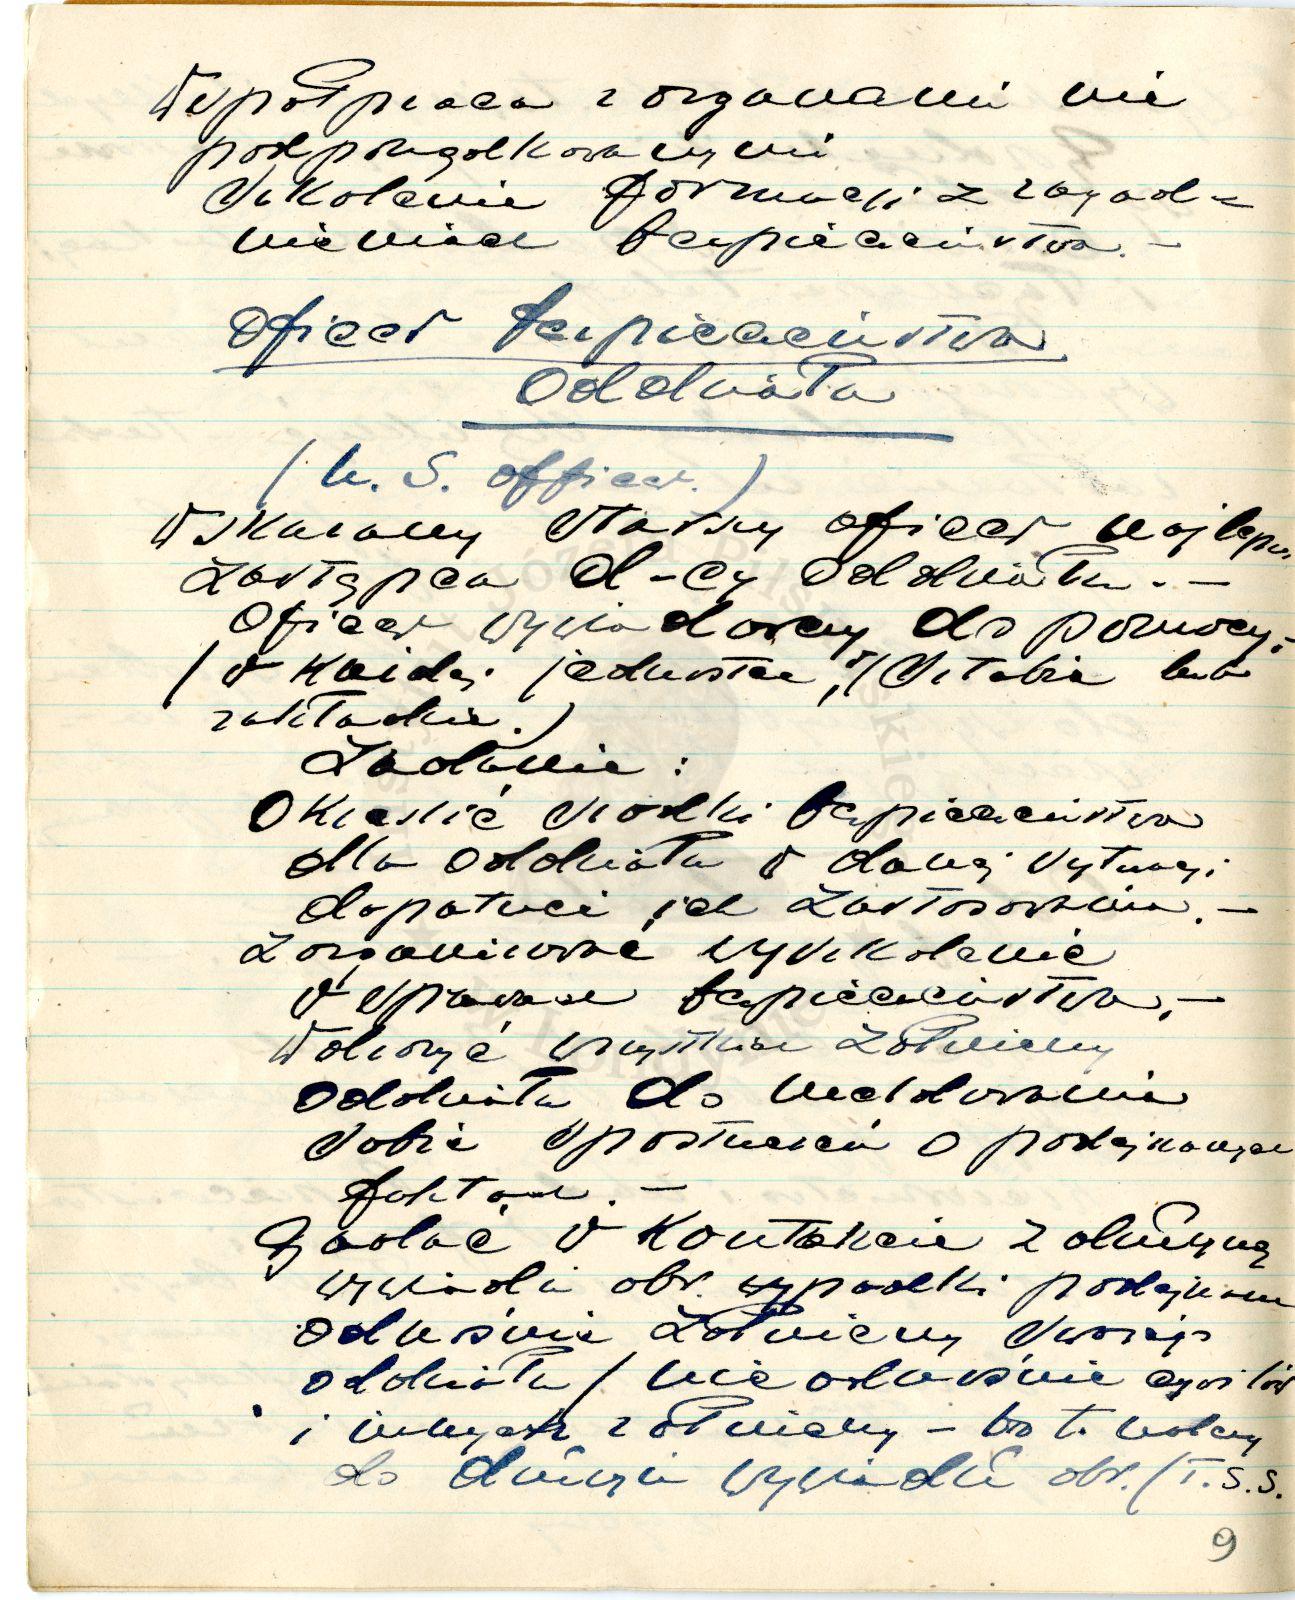 Współpraca z organami nie
podporządkowanymi
Szkolenie formacji z zagad-
nieniach bezpieczeństwa. -
Oficer bezpieczeństwa
Oddziału
(U. S. officer.)
Wskazany starszy oficer najlepiej
zastępca d-cy Oddziału. -
Oficer wywiadowczy do pomocy.
(w każdej jednostce, / Sztabie lub
zakładzie.)
Zadanie:
Określić środki bezpieczeństwa
dla Oddziału w danej sytuacji
dopatrzeć ich zastosowania. -
Zorganizować wyszkolenie
w sprawach bezpieczeństwa. -
Wdrożyć wszystkich żołnierzy
Oddziału do meldowania
sobie spostrzeżeń o podejrzanych
faktach. -
Badać w kontakcie z drużyną
wywiadu obr. wypadki podejrzane
odnośnie żołnierzy swojego
oddziału / nie odnośnie cywilów
i innych żołnierzy - bo to należy
do drużyn wywiadu obr. (T.S.S.
9